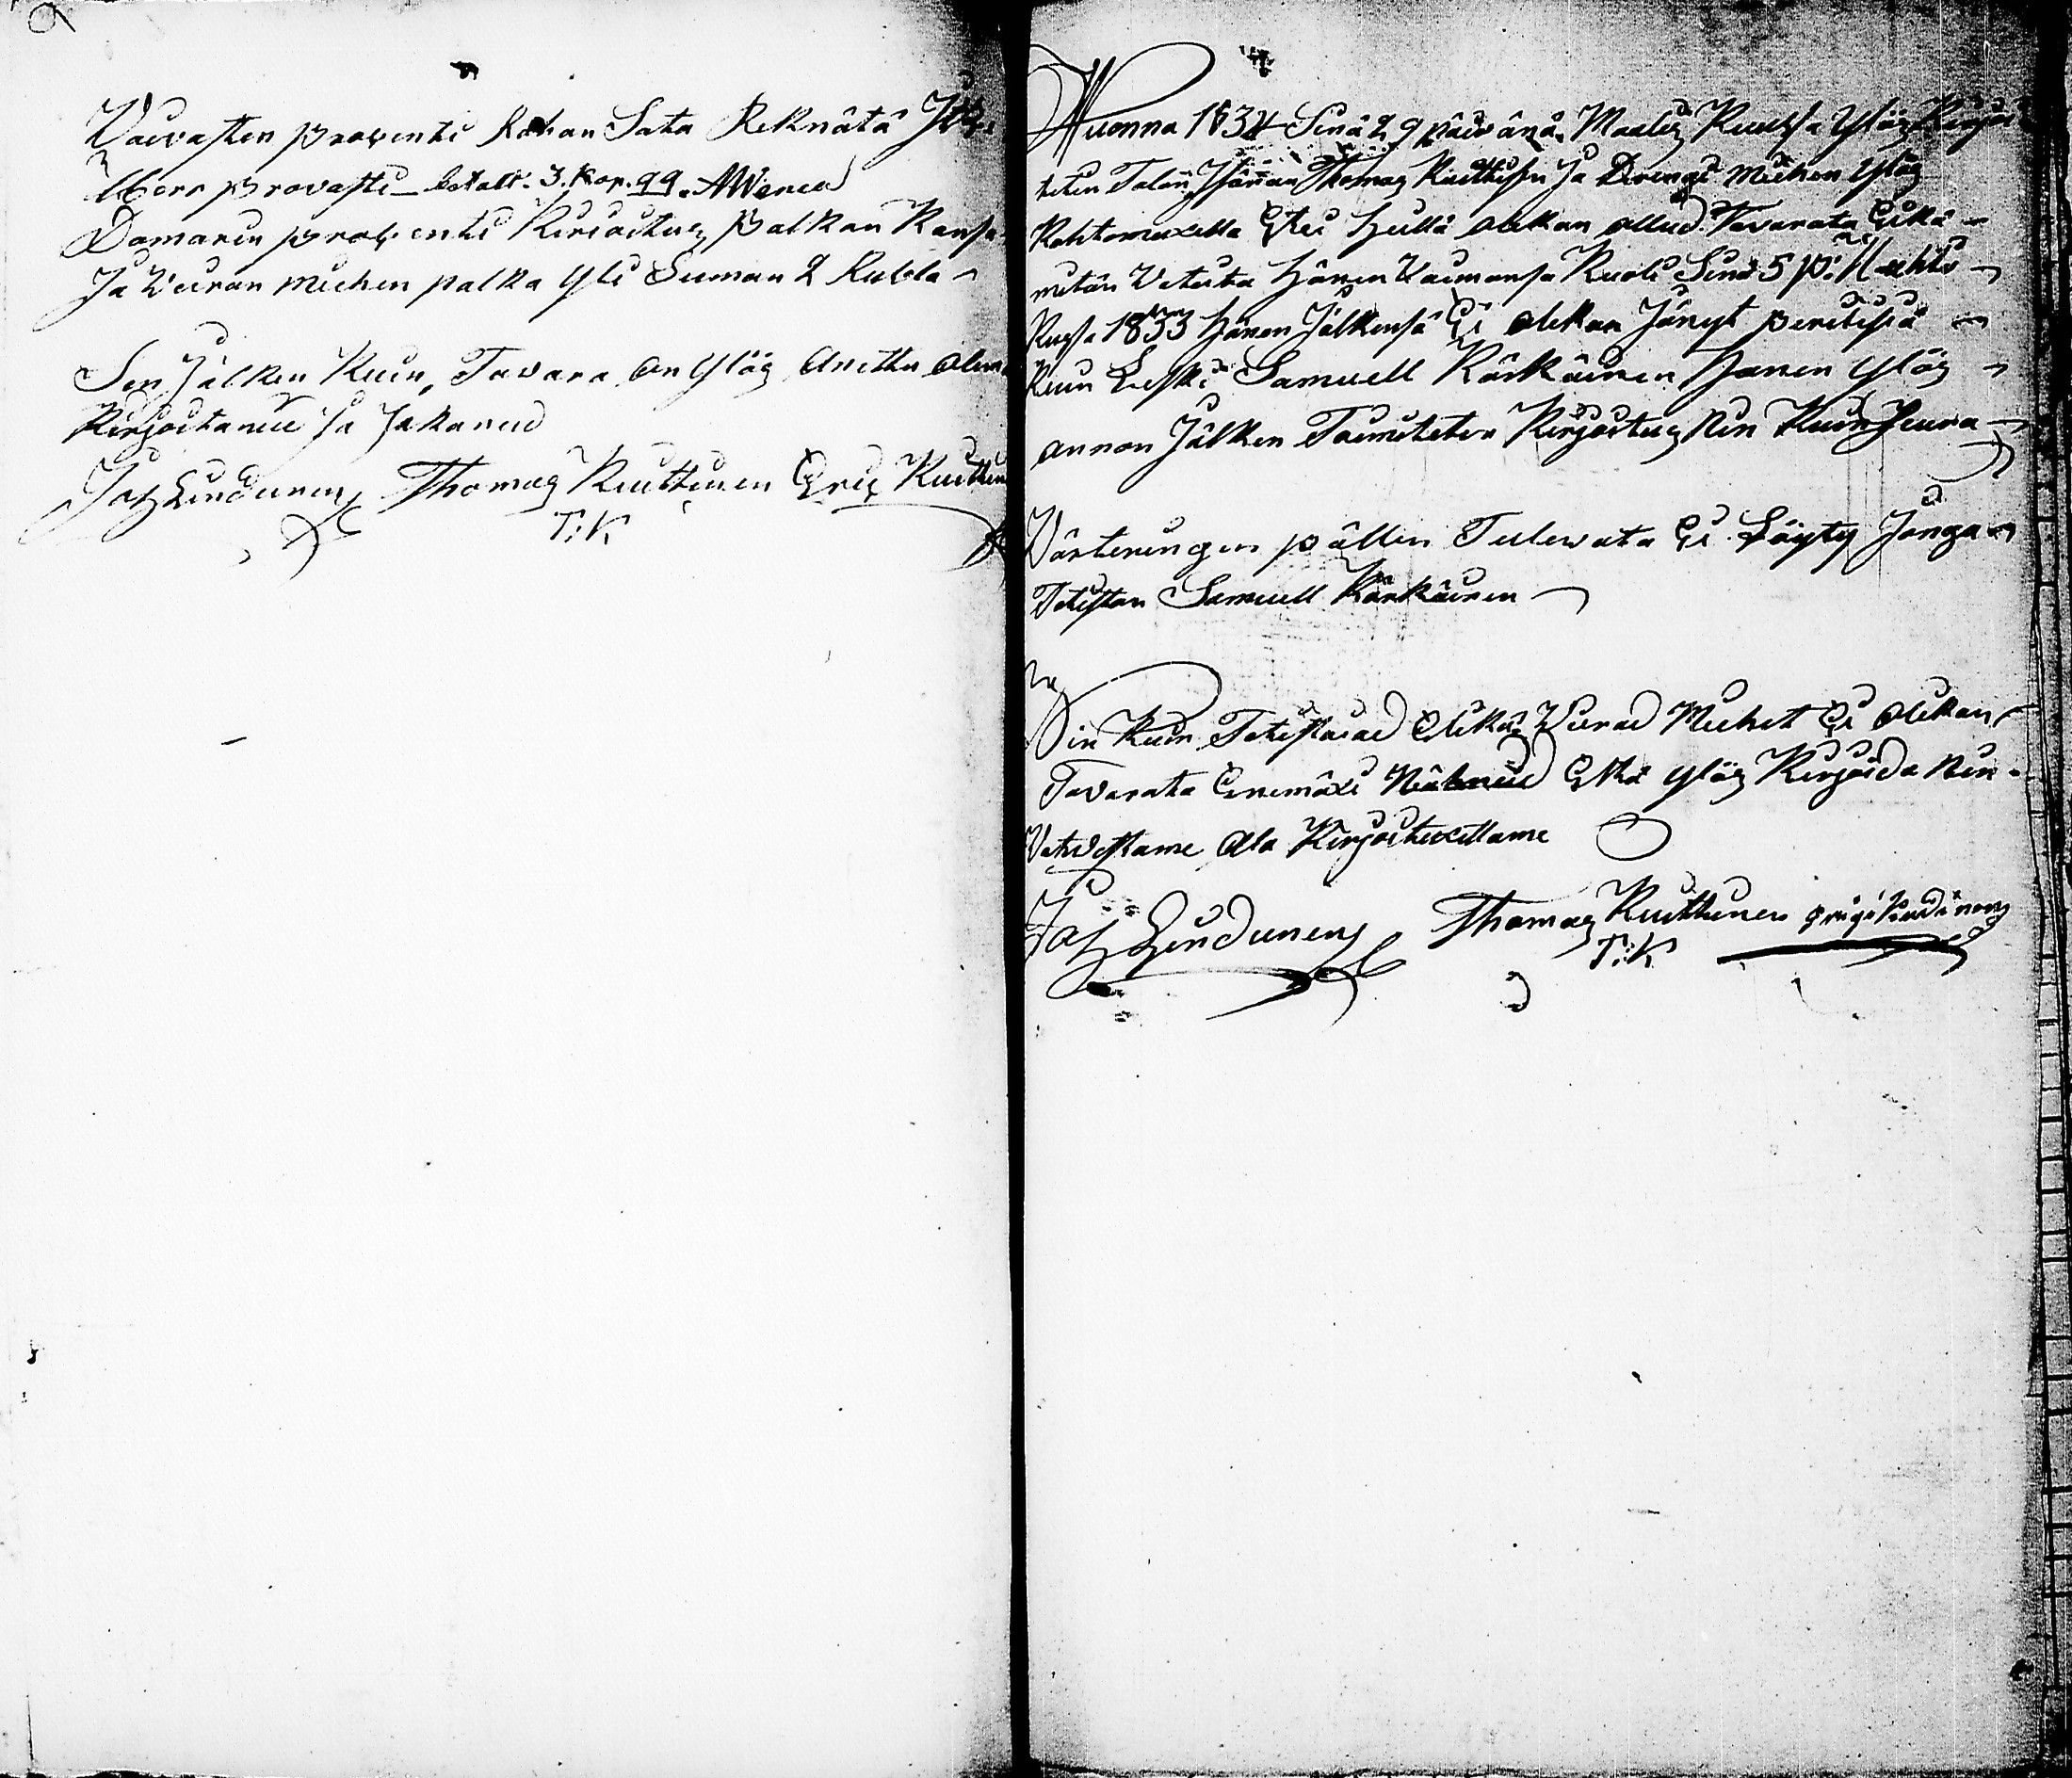 Vaivasten procenti Rahan Sata Reknätä
Herr provasti betalt. 3. Kop. 99. AWenell
Domarin procenti Kirioitus palkan Kansa
Ja Vieran miehen palka yli Suman 2 Rubla
Sen Jälken Kuin Tavara on Ylös Anettu olem
Kirjoitanut ja Jakanud
Joh Lindunen Thomas Kuittunen Eric Kuittun
T:K
Wuonna 1834 Sinä 29 päivänä Maalis Kuusa Ylös Kirjoi
tetin Talon Isännän Thomas Kuittusen Ja Drengi Miehen Ylös
Kohtomuxella Ettei heillä olekan ollud Tavarata Eikä
mitän Vetutta hänen Vaimonsa Kuoli Sinä 5 p: Huhti
Kusa 1833 hänen Jälkensä Ei olekan Jänyt peritisiä
Kuin Leski Samuell Kärkäinen Hanen Ylös
annon Jälken Toimitetin Kirjoitus Nin Kuin Seura
Värteringin pällen Tulewata Ei Löyty Jonga
Tetistan Samuell Kärkäinen
Nin Kuin Tetistavad Elikä Vierad Miehet Ei olekan
Tavarata Enemäxi Nähnüd Eikä ylös Kirjoida Nin
Vahvistame Ala Kirjoituxellame
Joh Lindunen Thomas Kuittunen
T:K